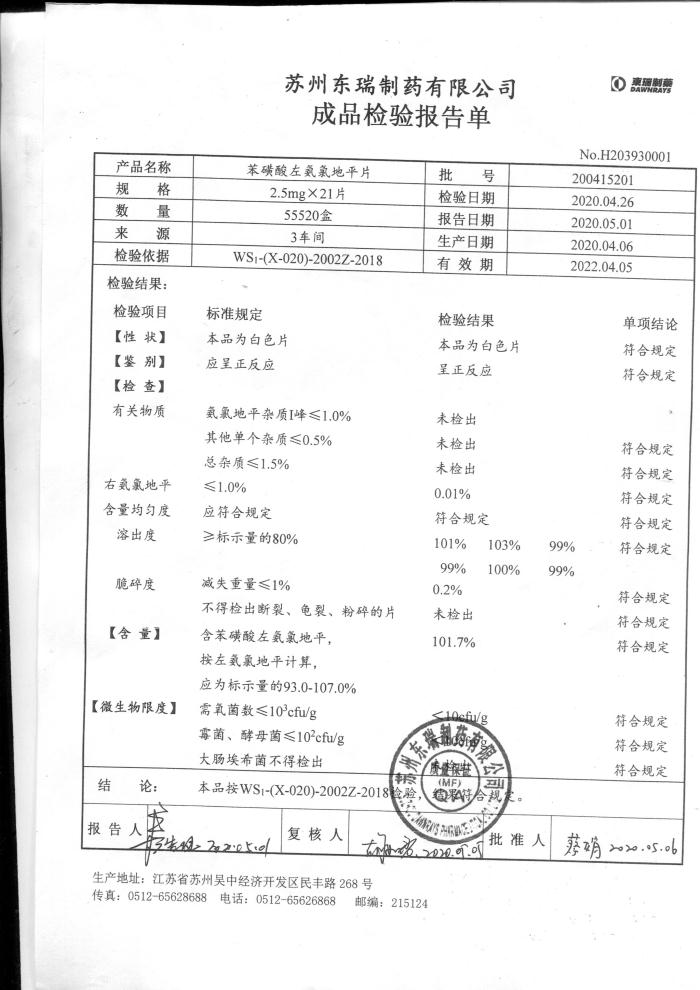 苏州东瑞制药有限公司
東瑞制藥
DAWNRAYS
成品检验报告单
No.H203930001
产品名称 苯磺酸左氨氯地平片 批 号 200415201
规 格 2.5mg×21片 检验日期 2020.04.26
数 量 55520盒 报告日期 2020.05.01
来 源 3车间 生产日期 2020.04.06
检验依据 WS₁-(X-020)-2002Z-2018 有 效 期 2022.04.05
检验结果：
检验项目 标准规定 检验结果 单项结论
【性 状】 本品为白色片 本品为白色片 符合规定
【鉴 别】 应呈正反应 呈正反应 符合规定
【检 查】
有关物质 氨氯地平杂质I峰≤1.0% 未检出 符合规定
其他单个杂质≤0.5% 未检出 符合规定
总杂质≤1.5% 未检出 符合规定
右氨氯地平 ≤1.0% 0.01% 符合规定
含量均匀度 应符合规定 符合规定 符合规定
溶出度 ≥标示量的80% 101% 103% 99%
99% 100% 99%
脆碎度 减失重量≤1% 0.2% 符合规定
不得检出断裂、龟裂、粉碎的片 未检出 符合规定
【含 量】 含苯磺酸左氨氯地平， 101.7% 符合规定
按左氨氯地平计算，
应为标示量的93.0-107.0%
【微生物限度】 需氧菌数≤10³cfu/g ≤10cfu/g 符合规定
霉菌、酵母菌≤10²cfu/g 符合规定
大肠埃希菌不得检出 未检出 符合规定
苏州东瑞制药有限公司
质量保证
(MF)
QA
结 论： 本品按WS₁-(X-020)-2002Z-2018检验，结果符合规定。
报告人 2020.05.01 复核人 2020.05.05 批准人 2020.05.06
生产地址：江苏省苏州吴中经济开发区民丰路 268 号
传真：0512-65628688 电话：0512-65626868 邮编：215124